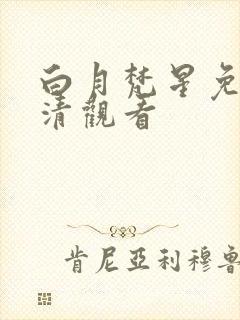 白月梵星免
清觀看
肯尼亞利穆魯